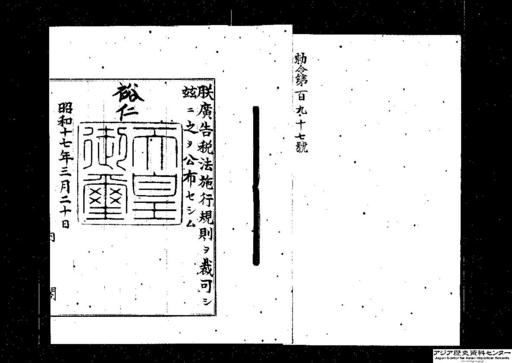 勅令第百九十七號
朕廣告税法施行規則ヲ裁可シ
玆ニ之ヲ公布セシム
裕仁
天皇御璽
昭和十七年三月二十日
内閣
アジア歴史資料センター
Japan Center for Asian Historical Records